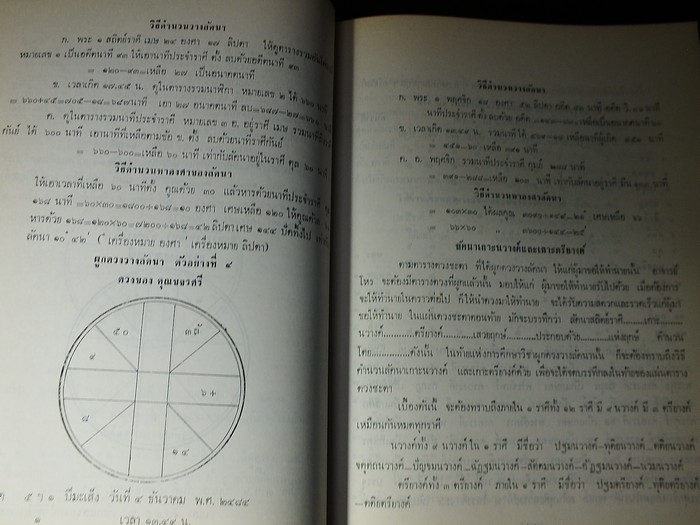 วิธีคำนวนวางลัคนา
ก. พระ ๑ สถิตย์ราศี เมษ ๒๔ องศา ๑๗ ลิปดา ให้ดูตารางรวมอันโต
หมายเลข ๑ เป็นอดีตนาที ๙๓ ให้เอานาทีประจำราศี ตั้ง ลบด้วยอดีตนาที ๙๓
= ๑๒๐-๙๓=เหลือ ๒๗ เป็นอนาคตนาที
ข. เวลาเกิด ๑๗.๔๕ น. ดูในตารางรวมนาฬิกา หมายเลข ๒ ได้ ๖๖๐
ค. ดูในตารางรวมนาทีประจำราศี หมายเลข ๓ ย. อยู่ราศี เมษ รวมนาที
กันย์ ได้ ๖๐๐ นาที เอานาทีที่เหลือตามข้อ ข. ตั้ง ลบด้วยนาทีราศีกันย์
= ๖๖๐-๖๐๐=เหลือ ๖๐ นาที เท่ากับลัคนาอยู่ในราศี ตุล
วิธีคำนวนหาองศาของลัคนา
ให้เอาเวลาที่เหลือ ๖๐ นาทีตั้ง คูณด้วย ๓๐ แล้วหารด้วยนาทีประจำราศี
๑๖๘ นาที =๖๐×๓๐=๑๘๐๐÷๑๖๘=๑๐ องศา เศษเหลือ ๑๒๐ ให้คูณด้วย
หารด้วย ๑๖๘=๑๒๐×๖๐=๗๒๐๐÷๑๖๘=๔๒ ลิปดา เศษ ๑๔๔ ปัดทิ้งไป
ลัคนา ๑๐ํ ๔๒ํ (ํ เครื่องหมาย องศา ' เครื่องหมาย ลิปดา)
ผูกดวงวางลัคนา ตัวอย่างที่ ๔
ดวงของ คุณขจรศรี
๕๐
๓ลั
๙
๖+
๘
๑๔
๕ ฯ ๑ ปีมะเส็ง วันที่ ๔ ธันวาคม พ.ศ. ๒๔๘๔
๑ เวลา ๑๓.๔๙ น.
วิธีคำนวนวางลัคนา
ก. พระ ๑ พฤศจิก
ข. เวลาเกิด ๑๓.๔๙ น.
= ๔๕๑-๖๐ =เหลือ ๓๙๑ นาที
ค. ย. พฤศจิก รวมนาทีประจำราศี กุมภ์ ๒๘๘ นาที
= ๓๙๑-๒๘๘=เหลือ ๑๐๓ นาที เท่ากับลัคนาอยู่ราศี มีน
วิธีคำนวนหาองศาลัคนา
= ๑๐๓×๓๐ ได้ผลคูณ
= ๖๖×๖๐
ลัคนาเกาะนวางค์และเกาะตรียางค์
ตามตารางดวงชะตา ที่ได้ผูกดวงวางลัคนา ให้แก่ผู้มาขอให้ทำนายนั้น อาจารย์
โหร จะต้องมีตารางดวงที่ผูกแล้วนั้น มอบให้แก่ ผู้มาขอให้ทำนายรับไปด้วย เมื่อต้องการ
จะให้ทำนายในคราวต่อไป ก็ให้นำดวงมาให้ทำนาย จะได้รับความสดวกและรวดเร็วแก่ผู้มา
ขอให้ทำนาย ในแผ่นดวงชะตาตอนท้าย มักจะบรรทึกว่า ลัคนาสถิตย์ราศี..........เกาะ
นวางค์..........ตรียางค์..........เสวยฤกษ์..........ประกอบด้วย..........แห่งฤกษ์ คำนวน
โดย..........ดังนั้น ในท้ายแห่งการศึกษาวิชาผูกดวงวางลัคนานั้น ก็จะต้องทราบถึงวิธี
คำนวนลัคนาเกาะนวางค์ และเกาะตรียางค์ด้วย เพื่อจะได้จดบรรทึกลงในท้ายของแผ่นตาราง
ดวงชะตา
เบื้องต้นนี้ จะต้องทราบถึงภายใน ๑ ราศีทั้ง ๑๒ ราศี มี ๙ นวางค์ มี ๓ ตรียางค์
เหมือนกันหมดทุกราศี
นวางค์ทั้ง ๙ นวางค์ ใน ๑ ราศี มีชื่อว่า ปฐมนวางค์-ทุติยนวางค์-ตติยนวางค์
จตุตถนวางค์-ปัญจมนวางค์-ฉัฏฐมนวางค์-สัตตมนวางค์-อัฏฐมนวางค์-นวมนวางค์
ตรียางค์ทั้ง ๓ ตรียางค์ ภายใน ๑ ราศี มีชื่อว่า ปฐมตรียางค์-ทุติยตรียางค์
-ตติยตรียางค์